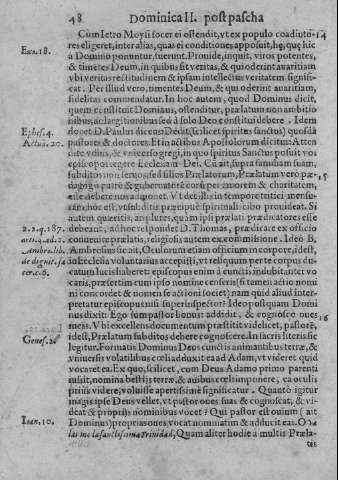 48 Dominica II. post pascha
Cum Ietro Moysi socer ei ostendit, vt ex populo coadiuto-14
Exo. 18.
res eligeret, inter alias, quas ei conditiones apposuit, hę, quę hic
à Domino ponuntur, fuerunt. Prouide, inquit, viros potentes,
& timentes Deum, in quibus sit veritas, & qui oderint auaritiam
vbi veritas rectitudinem & ipsam intellectus veritatem signifi-
cat. Per illud vero, timentes Deum, & qui oderint auaritiam,
fidelitas commendatur. In hoc autem, quod Dominus dicit,
quem constituit Dominus, ostenditur, prælatum non ambitio
nibus, ac largitionibus sed à solo Deo constitui debere. Idem
Ephes. 4.
docet D. Paulus dicens: Dedit (scilicet spiritus sanctus) quosdā
Actuũ. 20.
pastores & doctores. Et in actibus Apostolorum dicitur: Atten
dite vobis, & vniuerso gregi, in quo spiritus Sanctus posuit vos
episcopos regere Ecclesiam Dei. Cũ ait supra familiam suam,
subditos non seruos, sed filios Prælatorum, Prælatum vero pæ-15
dagogũ patrē & gubernatorē corũ per amorem & charitatem,
in tempore tritici mensu-
ram, hoc est, vt subditis prædictē spiritualē cibo prouideat. Si
autem quæritis, an plures, quàm ipsi prælati prædicatores esse
2. 2. q. 187.
debeant, ad hoc respondet D. Thomas, prædicare ex officio
artic. 4. ad. 2
conuenire prælatis, religiosis autem ex commissione. Ideò B.
Ambro. lib.
Ambrosius sicait, Oculorum etiam officium in corpore, idest,
de dignit. sa
in Ecclesia voluntarias accepisti, vt reliquum perte corpus du-
cer. c. 6.
catum lucis haberet: episcopus enim à cunctis indubitanter vo
caris, præsertim cum ipso nomine censeris si tamen actio nomi
ni concordet & nomen se actioni societ) nam quid aliud inter-
pretatur episcopus nisi superinspector? Ideo postquam Domi
nus dixit: Ego sum pastor bonus: addidit, & cognosco oues 16
meas. Vbi excellens documentum præstitit videlicet, pastorē,
idest, Prælatum subditos debere cognoscere. In sacris literis sic
Genes. 2
legitur. Formatis Dominus Deus cunctis animantibus terræ, &
vniuersis volatilibus cœli adduxit ea ad Adam, vt videret quid
vocaret ea. Ex quo, scilicet, cum Deus Adamo primo parenti
iusit, nomina bestijs terræ, & auibus cœli imponere, ea oculis
prius videre, voluisse apertissimè significatur. Quantò igitur
magis ipse Deus vellet, vt pastor oues suas & cognoscat, & vi-
deat & proprijs nominibus vocet? Qui pastor est ouium (ait
Ioan. 10.
Dominus) proprias oues vocat nominatim & adducit eas. O
la me la sanctissima Trinidad, Quam aliter hodie à multis Præla-
tis